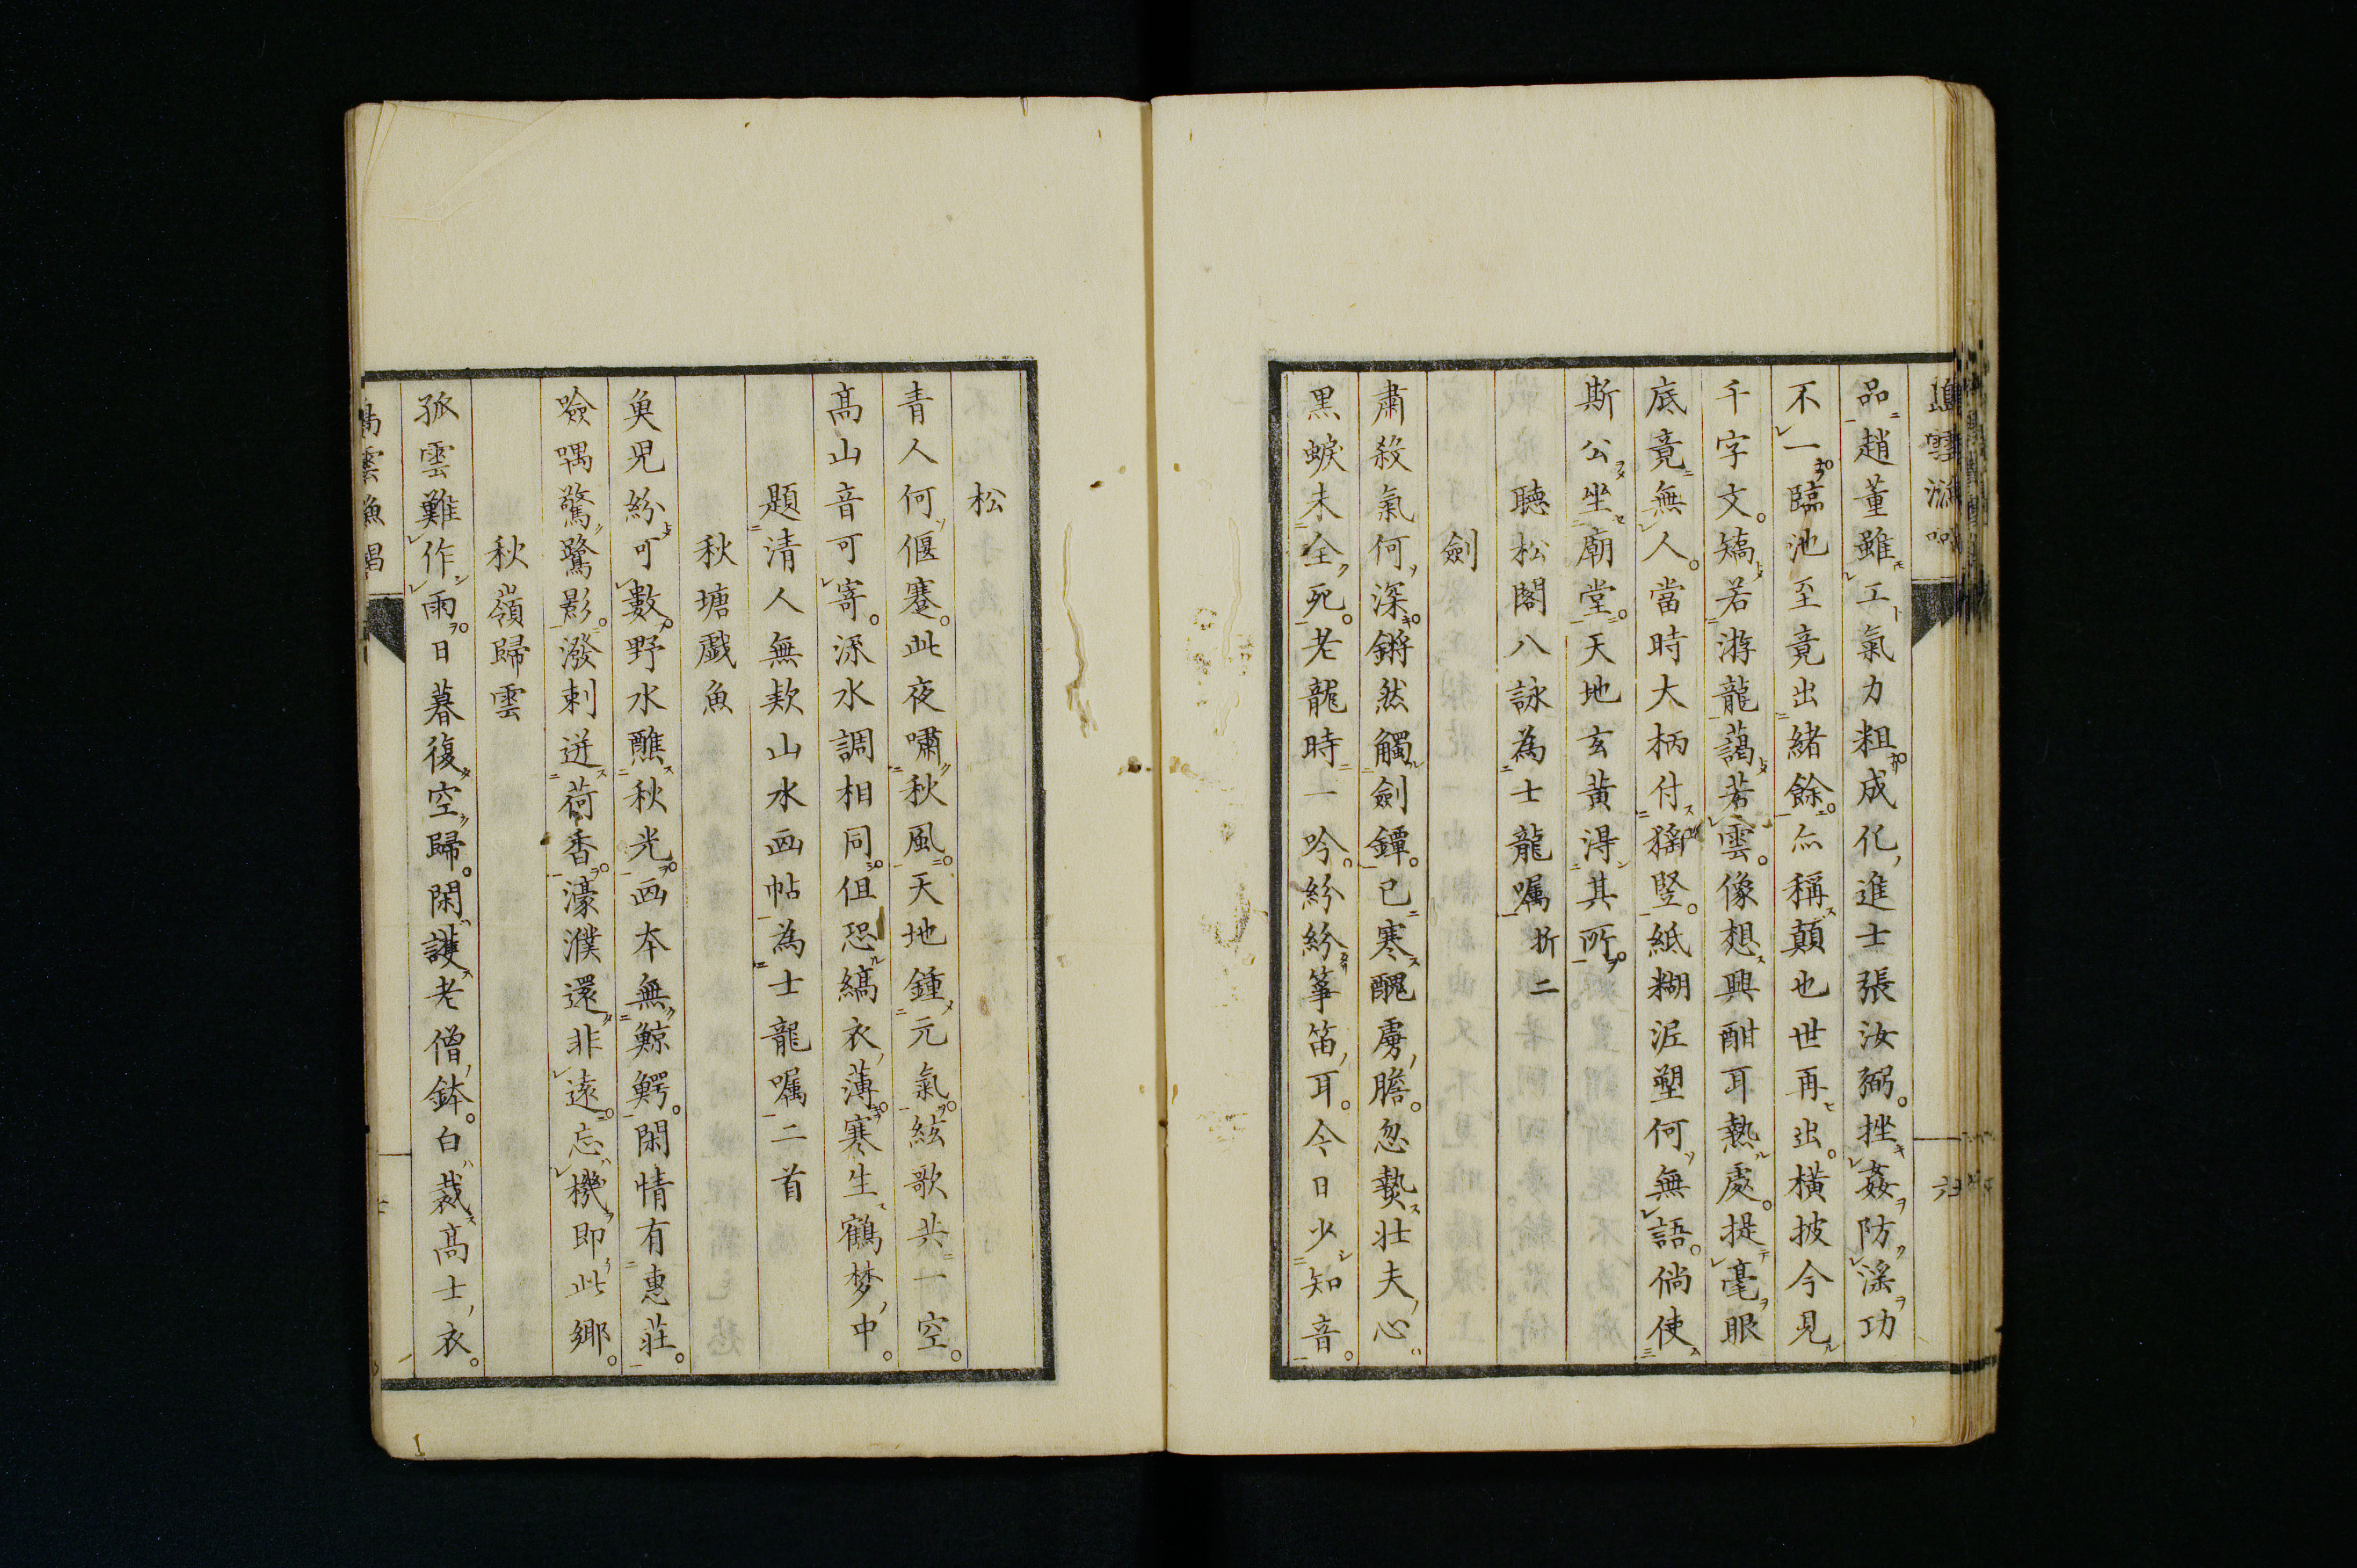 品趙董雖工氣力粗成化進士張汝弼挫姦防淫功
不一臨池至竟出緒餘亦稱顛也世再出橫披今見
千字文矯若游龍藹若雲像想興酣耳熱處提毫眼
底竟無人當時大柄付猾竪紙糊泥塑何無語倘使
斯公坐廟堂天地玄黃得其所
聴松閣八詠為士龍嘱折二
劍
肅殺氣何深鏘然觸劍鐔已寒醜虜膽忽熱壮夫心
黒蛟未全死老龍時一吟紛紛筝笛耳今日少知音
松
青人何偃蹇此夜嘯秋風天地鍾元氣絃歌共一空
髙山音可寄深水調相同但恐縞衣薄寒生鶴梦中
題清人無款山水画帖為士龍嘱二首
秋塘戯魚
魚児紛可數野水醮秋光画本無鯨鰐閑情有惠荘
噞喁驚鷺影潑剌迸荷香濠濮還非遠忘機即此郷
秋嶺歸雲
孤雲難作雨日暮復空歸閑護老僧鉢白裁髙士衣